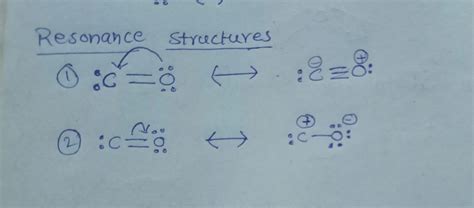 Resonance Structures
① :C=Ö: ⟷ :C⊖≡O⊕:
② :C=Ö: ⟷ :C⊕−Ö⊖: